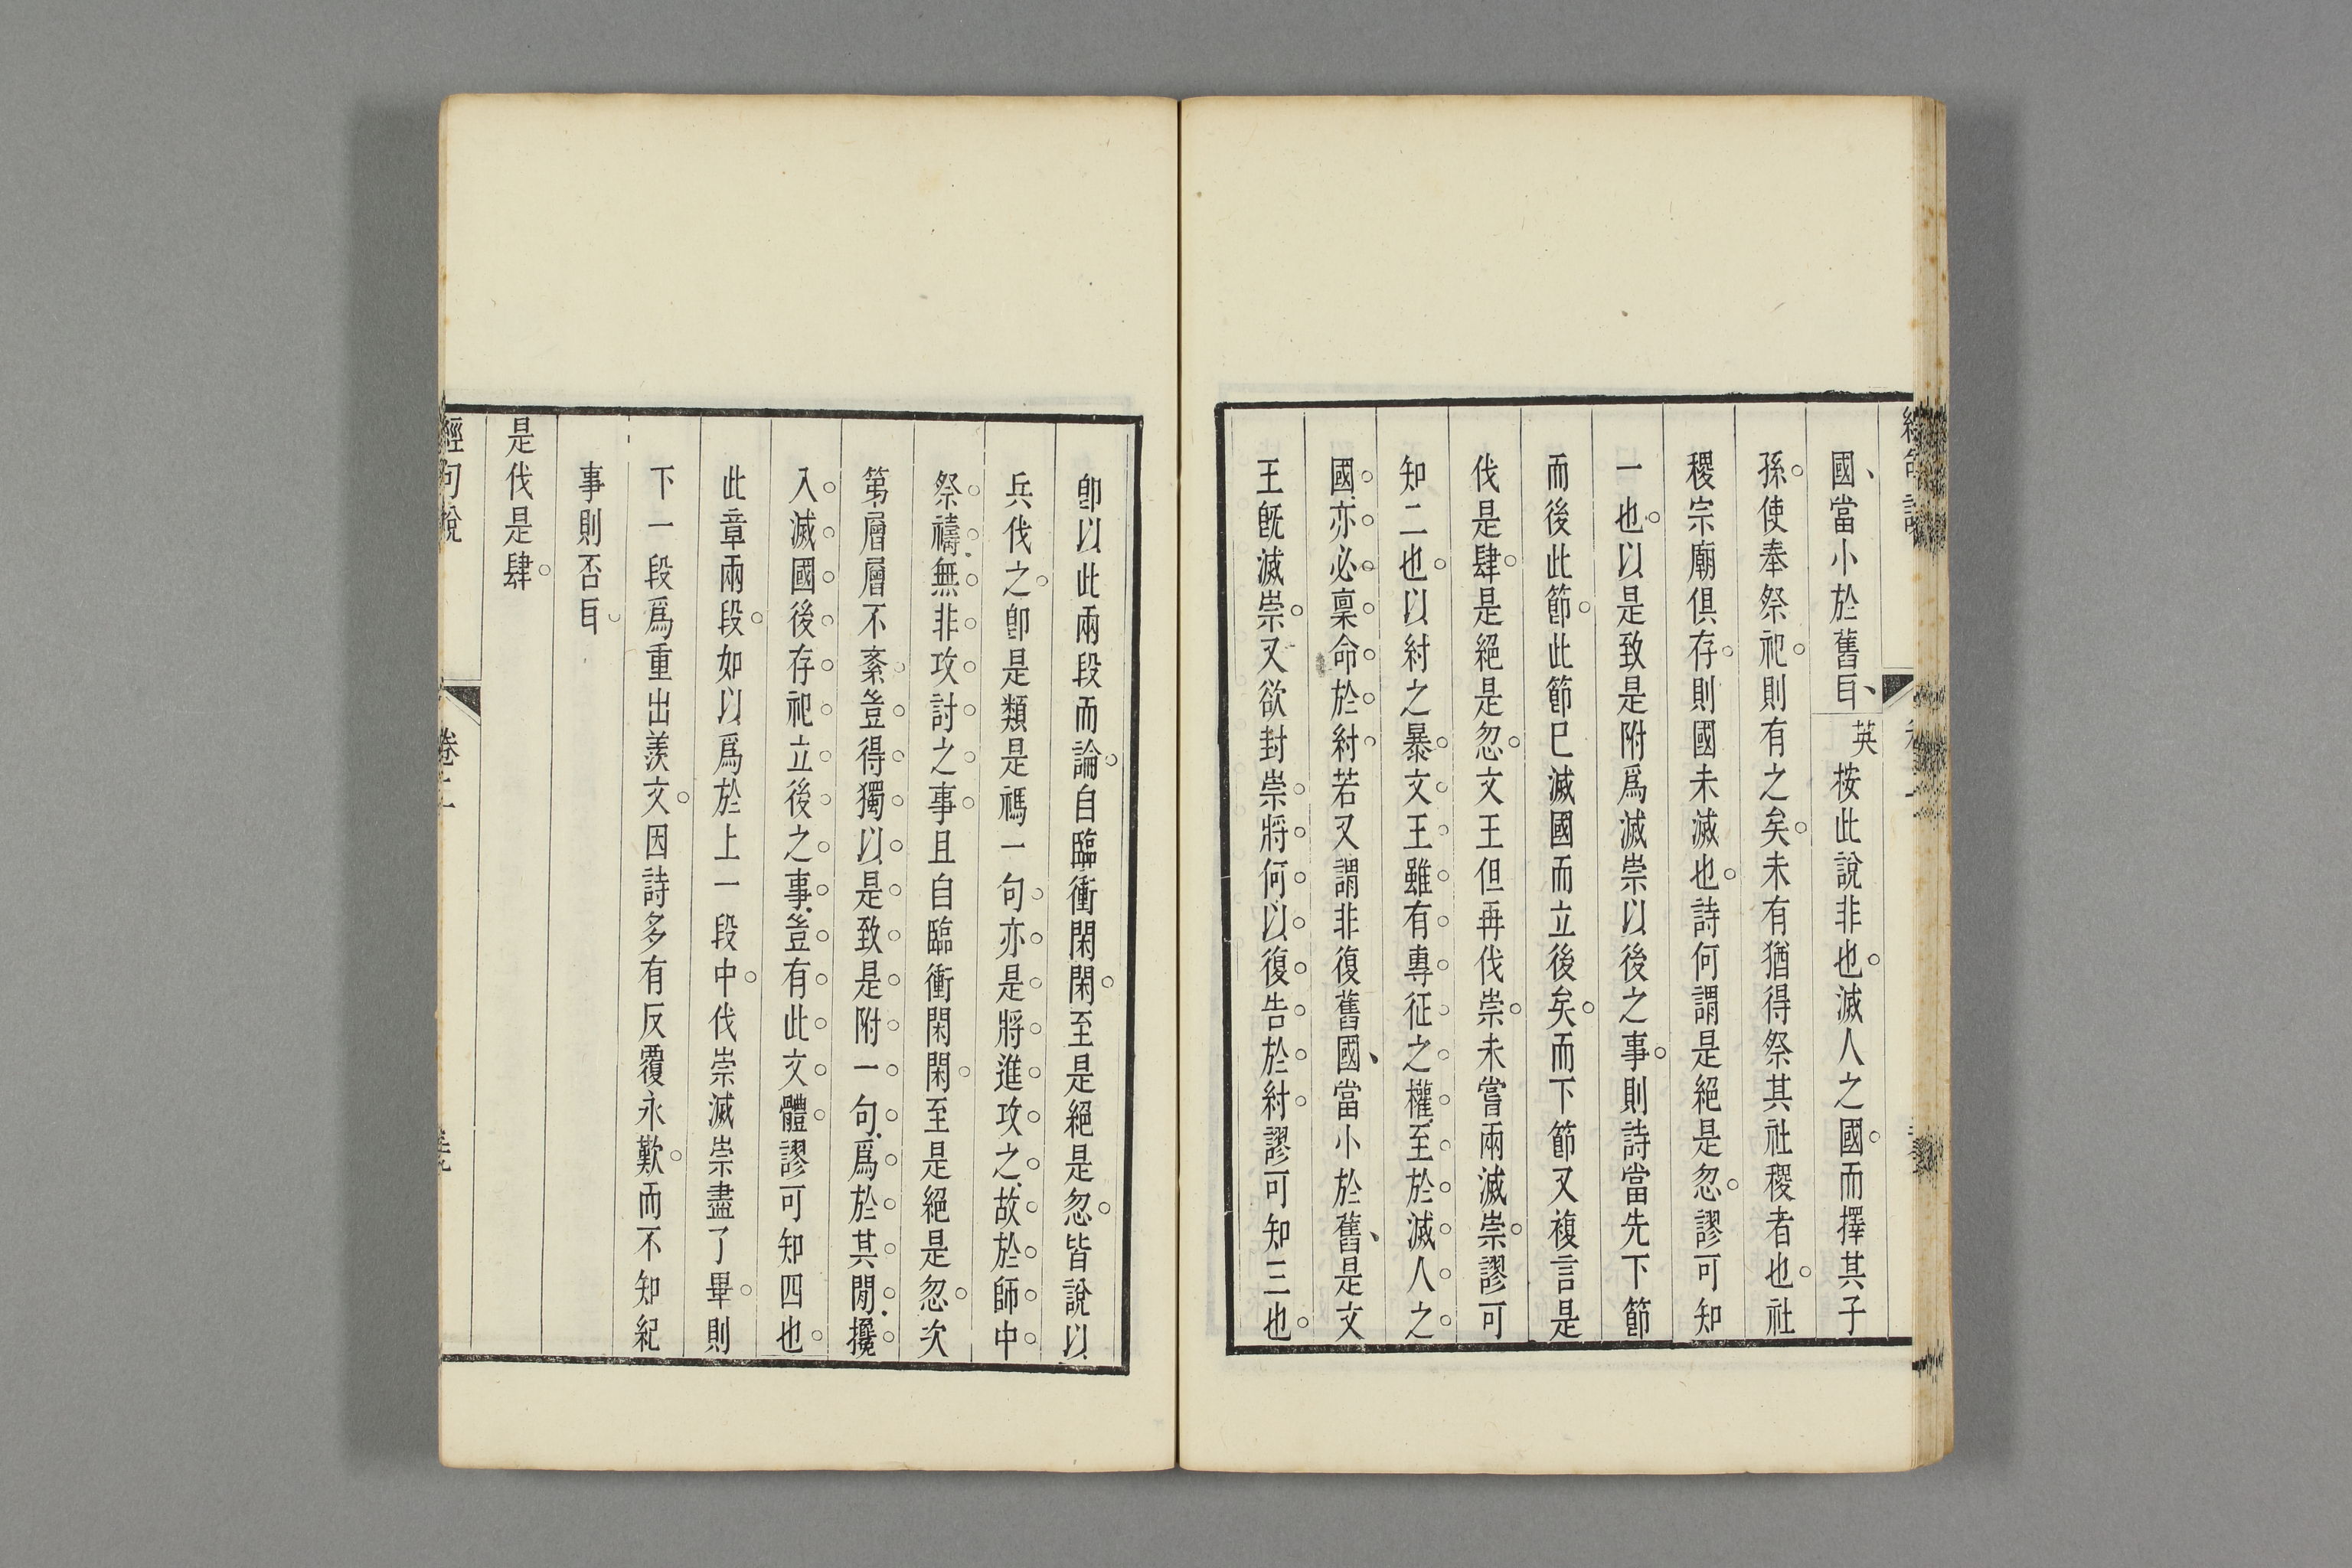 國、當小於舊㠯、英按此說非也。滅人之國。而擇其子
孫。使奉祭祀。則有之矣。未有猶得祭其社稷者也。社
稷宗廟俱存。則國未滅也。詩何謂是絕是忽。謬可知
一也。以是致是附爲滅崇以後之事。則詩當先下節
而後此節。此節巳滅國而立後矣。而下節又複言是
伐是肆。是絕是忽。文王但再伐崇。未嘗兩滅崇。謬可
知二也。以紂之暴。文。王。雖。有。專。征。之。權。至。於。滅。人。之。
國。亦。必。稟。命。於。紂。若又謂非復舊國、當小於舊、是文
王旣滅崇。又欲封崇。將。何。以。復。告。於。紂。謬可知三也。
卽以此兩段而論。自臨衝閑閑。至是絕是忽。皆說以
兵伐之。卽是類是禡一句。亦。是。將。進。攻。之。故。於。師。中。
祭。禱。無。非。攻。討。之。事。且自臨衝閑閑。至是絕是忽。次
第層層不紊。豈。得。獨。以。是。致。是。附。一。句。爲。於。其。閒。攙。
入。滅。國。後。存。祀。立。後。之。事。豈。有。此。文。體。謬可知四也。
此章兩段。如以爲於上一段中。伐崇滅崇盡了畢。則
下一段爲重出羨文。因詩多有反覆永歎。而不知紀
事則否㠯。
是伐是肆。
經句說
卷十二